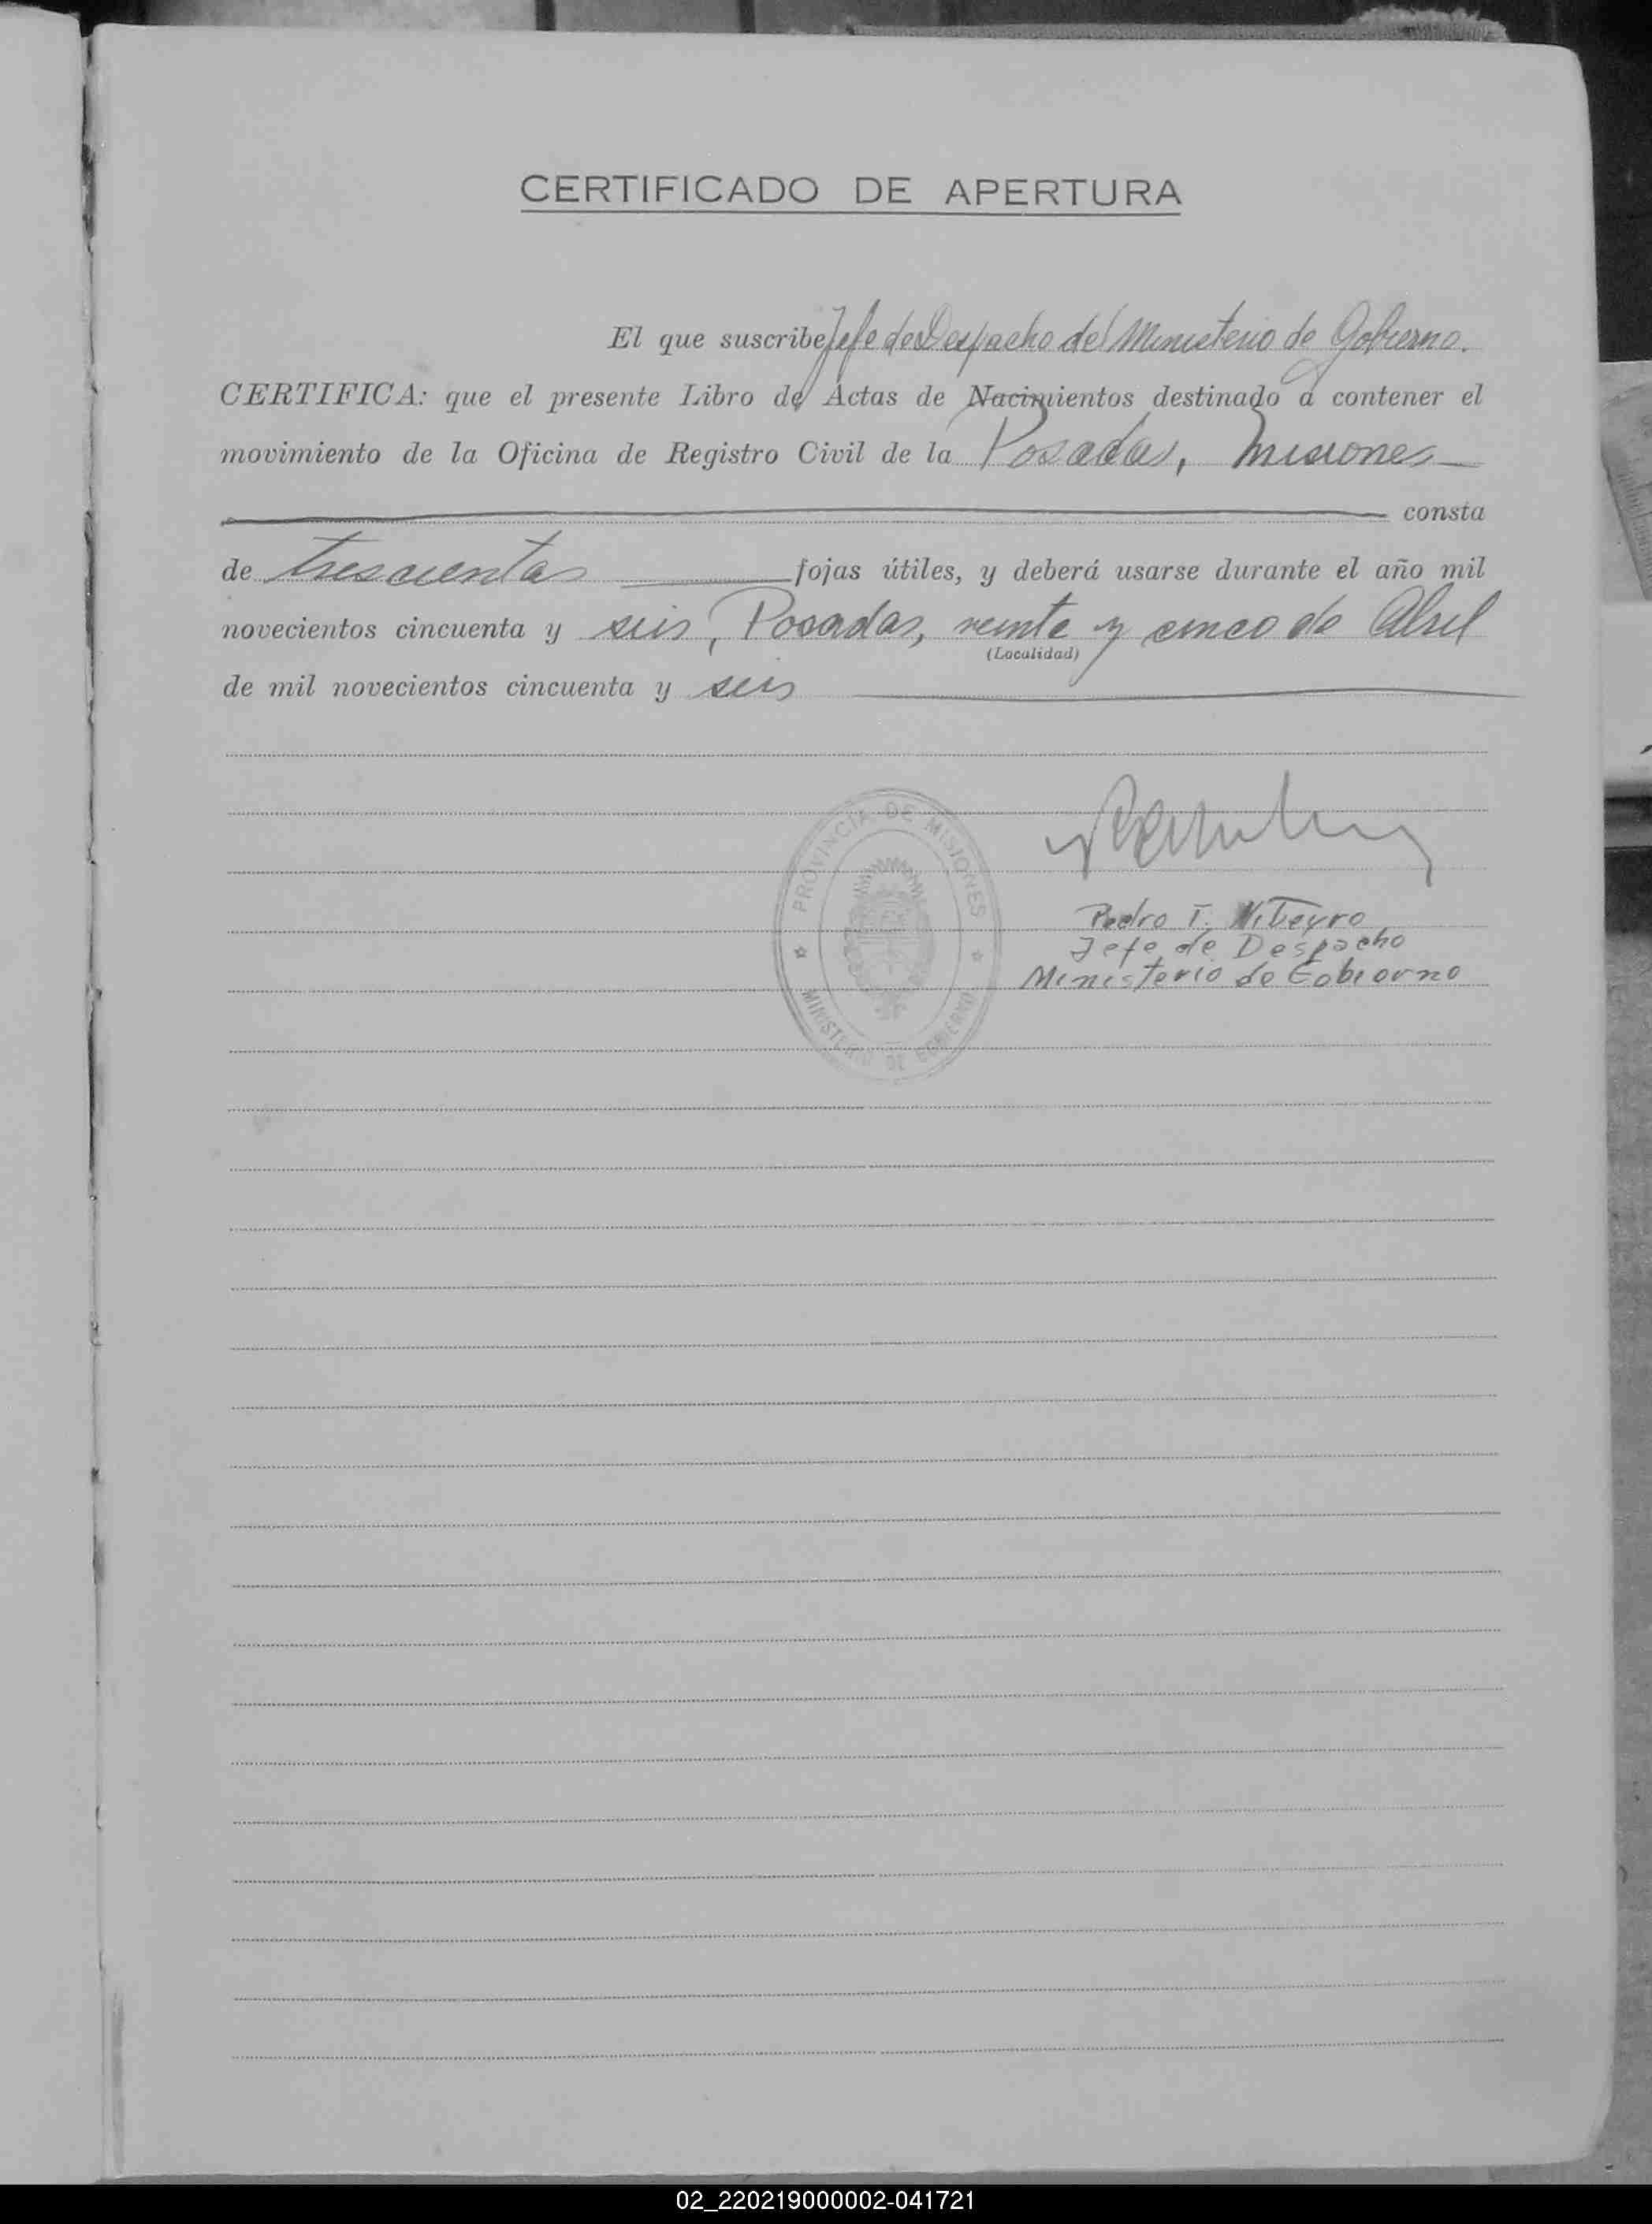 CERTIFICADO DE APERTURA
El que suscribe Jefe de Despacho del Ministerio de Gobierno.
CERTIFICA: que el presente Libro de Actas de Nacimientos destinado a contener el
movimiento de la Oficina de Registro Civil de la Posadas, Misiones
consta
de trescientas fojas útiles, y deberá usarse durante el año mil
novecientos cincuenta y seis, Posadas, veinte y cinco de Abril
(Localidad)
de mil novecientos cincuenta y seis
PROVINCIA DE MISIONES
MINISTERIO DE GOBIERNO
Pedro I. Niveyro
Jefe de Despacho
Ministerio de Gobierno
02_220219000002-041721